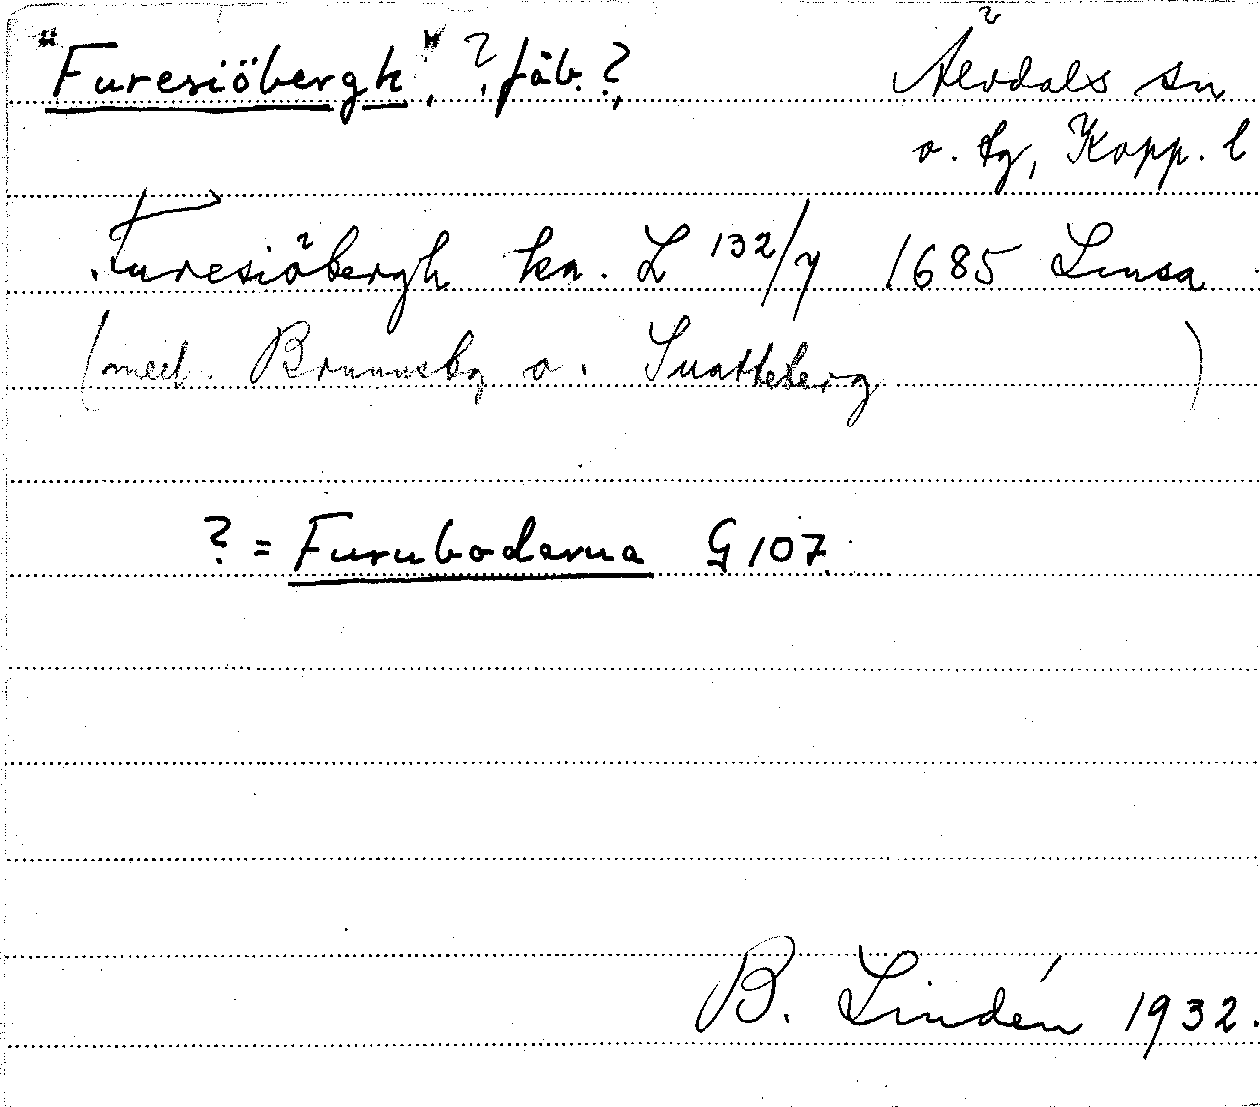 "Furesiöbergk", ?, fäb.?, Älvdals sn
o. tg, Kopp. l
Furesiöbergh ka. L 132/7 1685 Linsa
(med. Brunnsbg o. Snatteberg)
? = Furubodarna G 107.
B. Lindén 1932.